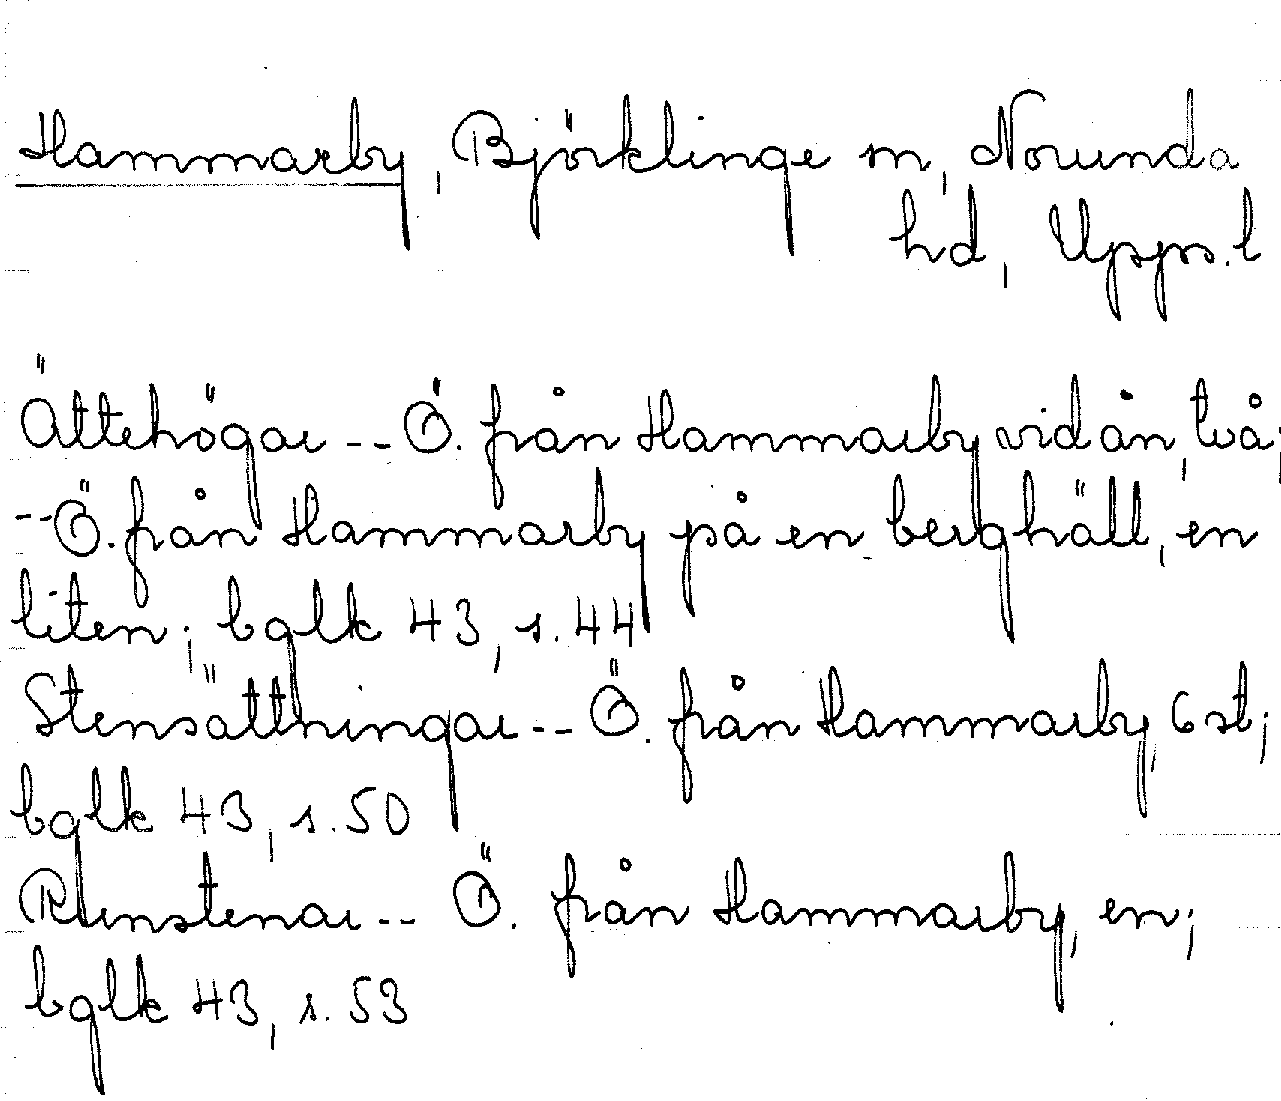 Hammarby, Björklinge sn, Norunda
hd, Upps.l
Ättehögar -- Ö. från Hammarby vid ån, två;
-- Ö. från Hammarby på en berghäll, en
liten; bglk 43, s. 44
Stensättningar -- Ö. från Hammarby, 6 st;
bglk 43, s. 50
Runstenar -- Ö. från Hammarby, en;
bglk 43, s. 53